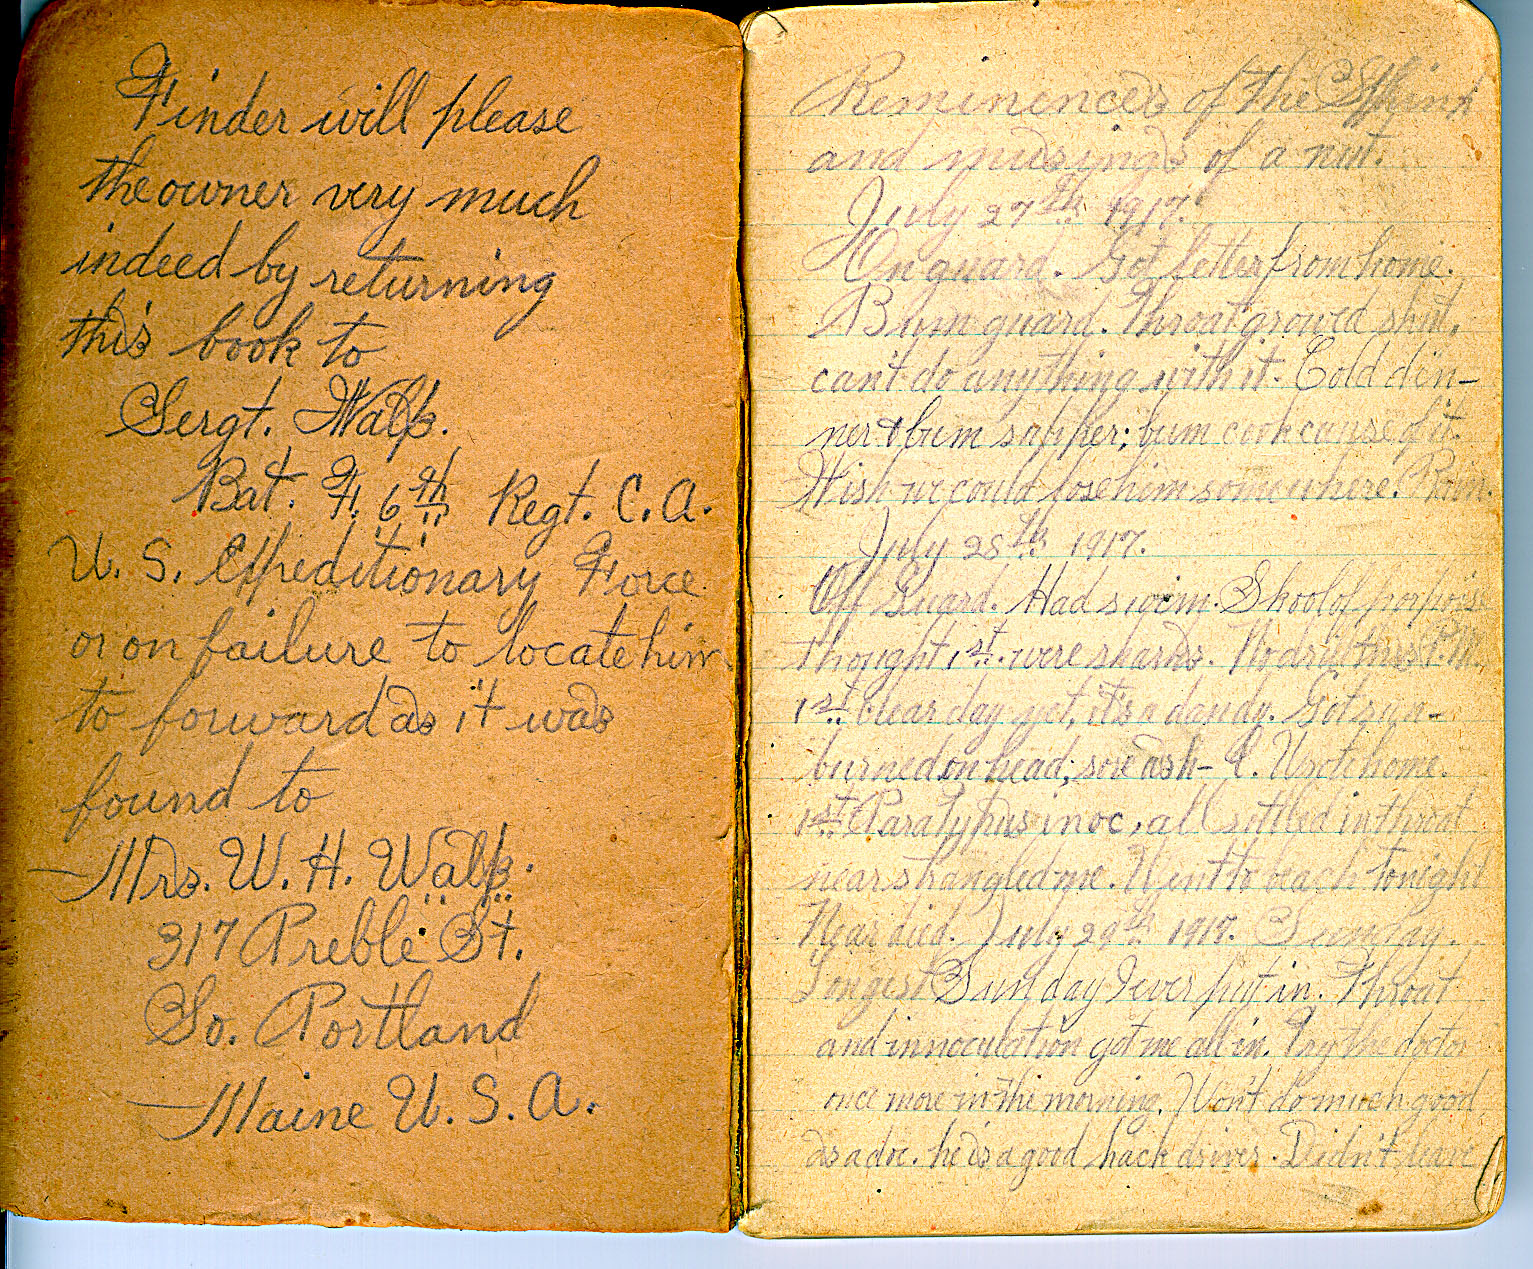 Finder will please
the owner very much
indeed by returning
this book to
Sergt. Walk.
Bat. F. 6th Regt. C. A.
U. S. Expeditionary Force
or on failure to locate him
to forward as it was
found to
Mrs. W. H. Walk.
317 Preble St.
So. Portland
Maine U. S. A.
Reminences of the
and musings of a nut.
July 27th 1917.
On guard. Got letter from home.
Bum guard. Throat growed shut,
can't do anything with it. Cold din-
ner & bum supper; bum cook cause of it.
Wish we could lose him somewhere. Rain.
July 28th 1917.
Off Guard. Had swim. Skool of porpois
thought 1st were sharks. No drill this P.M.
1st clear day yet, it's a dandy. Got sun-
burned on head; sore as h-l. Wrote home.
1st Paratyphus inoc, all settled in throat
near strangled me. Went to beach tonight
Near died. July 29th 1917. Sunday.
Longest Sunday I ever put in. Throat
and innoculation got me all in. Try the doctor
once more in the morning. Won't do much good
as a doc. he is a good hack driver. Didn't leave